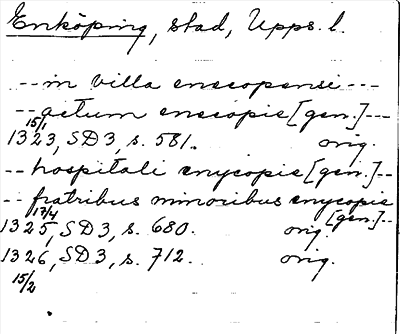 Enköping, stad, Upps. l.
-- in villa enecopensi ---
-- actum enecopie [gen.] ---
15/1
1323, SD 3, s. 581. orig.
-- hospitali enycopie [gen.] --
-- fratribus minoribus enycopie [gen.] --
17/4
1325, SD 3, s. 680. orig.
1326, SD 3, s. 712. orig.
15/2